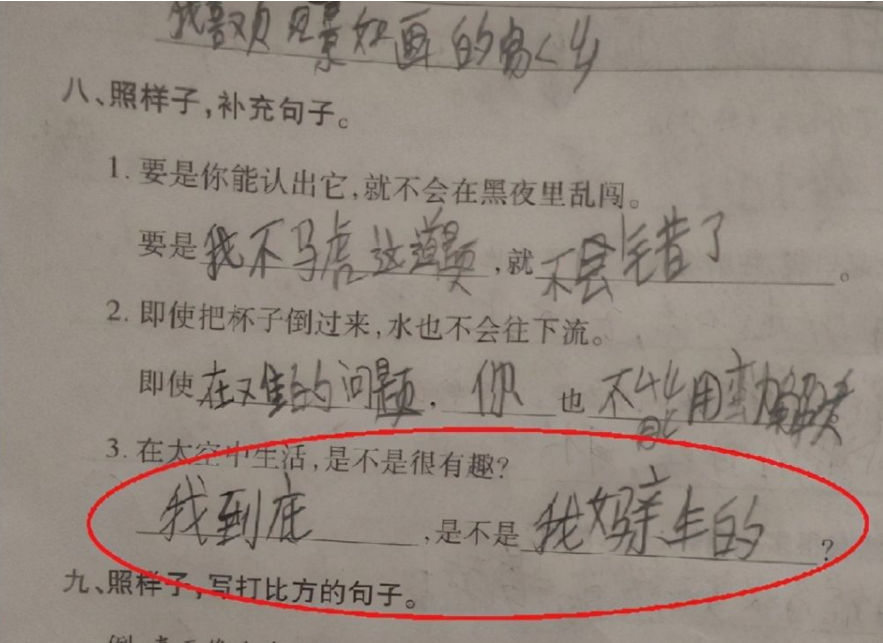 我歌颂风景如画的家乡
八、照样子,补充句子。
1. 要是你能认出它,就不会在黑夜里乱闯。
要是我不马虎这道题,就不会错了。
2. 即使把杯子倒过来,水也不会往下流。
即使在难的问题,你也不能用蛮力解决
3. 在太空中生活,是不是很有趣?
我到底,是不是我妈亲生的?
九、照样子,写打比方的句子。